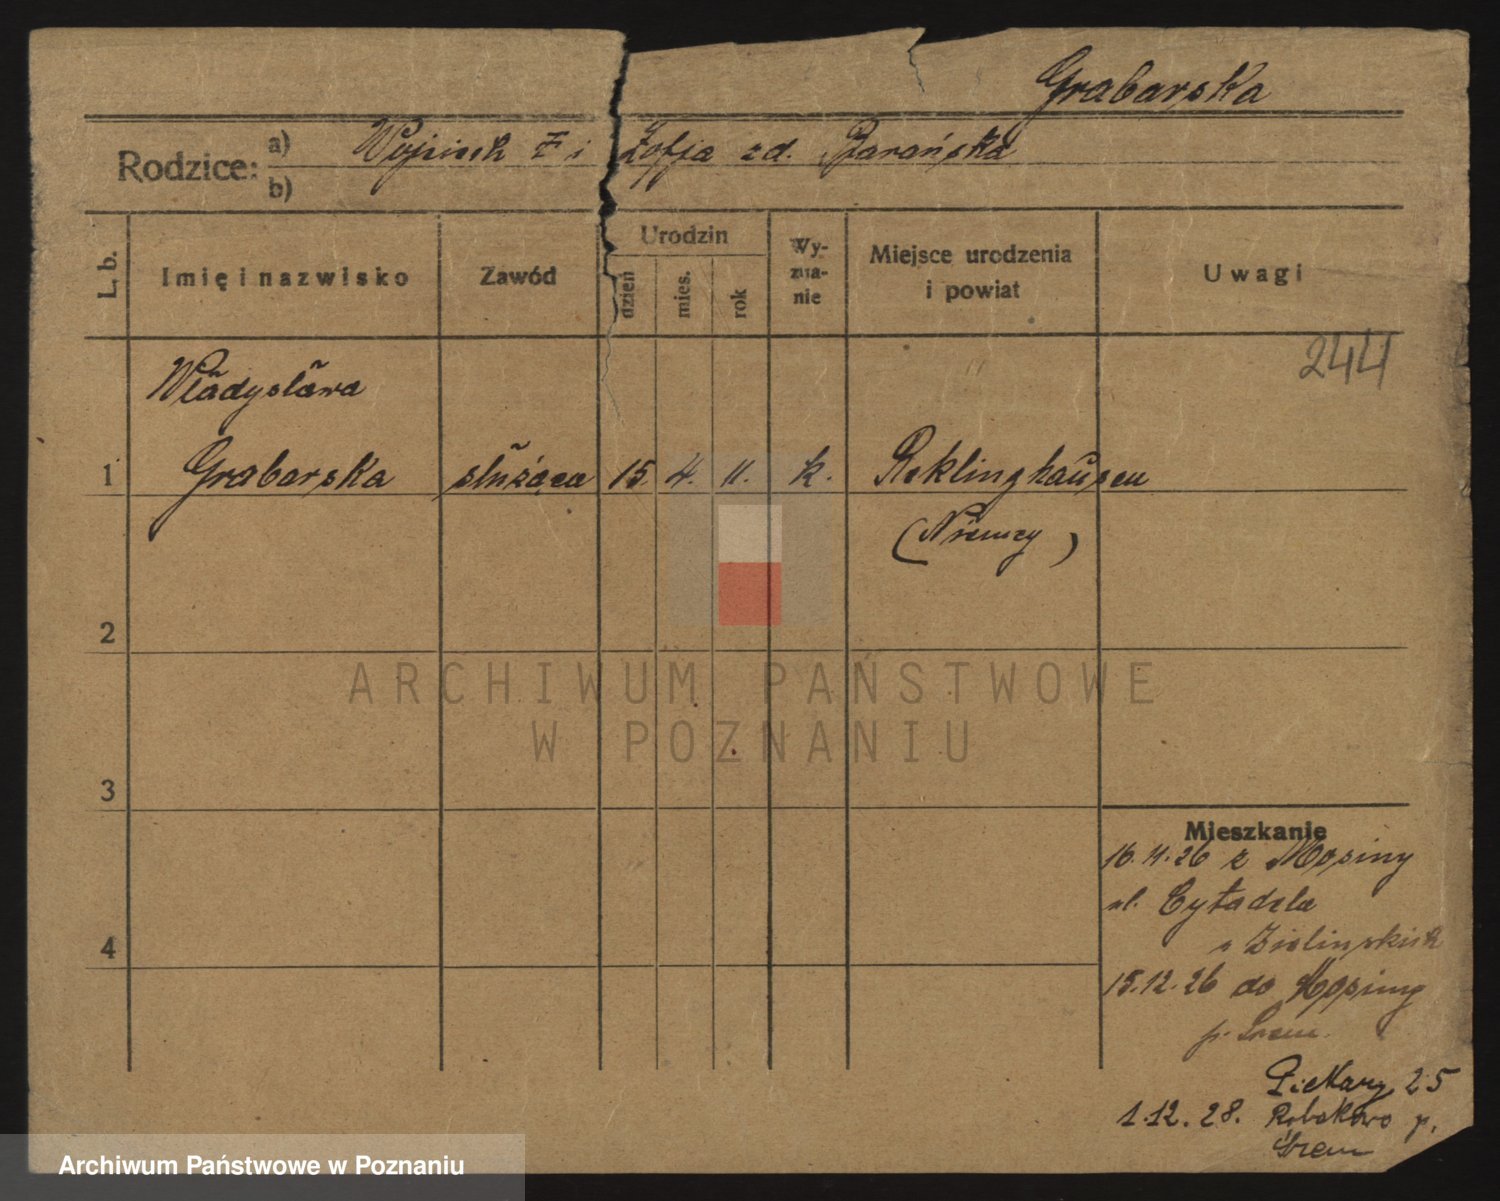 Grabarska
Rodzice: a) Wojciech i Zofja zd. Barańska
b)
L. b.
Imię i nazwisko
Zawód
Urodzin
dzień
mies.
rok
Wy-
zna-
nie
Miejsce urodzenia
i powiat
Uwagi
244
Władysława
1 Grabarska służąca 15. 4. 11. k. Reklinghausen
(Niemcy)
2
ARCHIWUM PAŃSTWOWE
W POZNANIU
3
Mieszkanie
16.11.26 z Mosiny
ul. Cytadela
u Zielinskich
4
15.12.26 do Mosiny
p. Śrem
Piekary 25
1.12.28. p.
Śrem
Archiwum Państwowe w Poznaniu